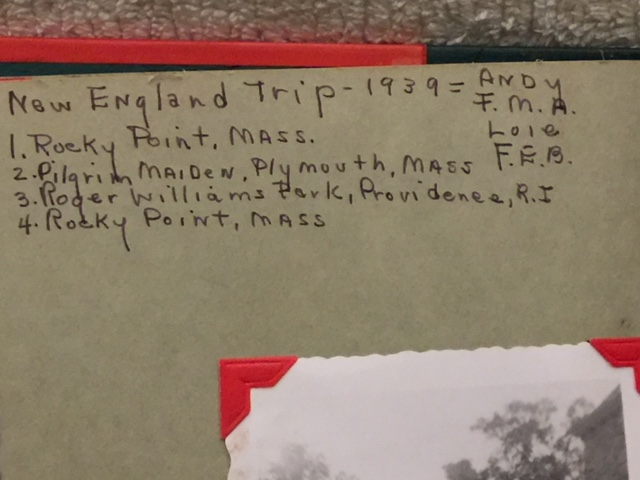 New England Trip - 1939 = ANDY
F. M. A.
Loie
F. E. B.
1. Rocky Point, MASS.
2. Pilgrim MAIDEN, Plymouth, MASS
3. Roger Williams Park, Providence, R.I
4. Rocky Point, MASS